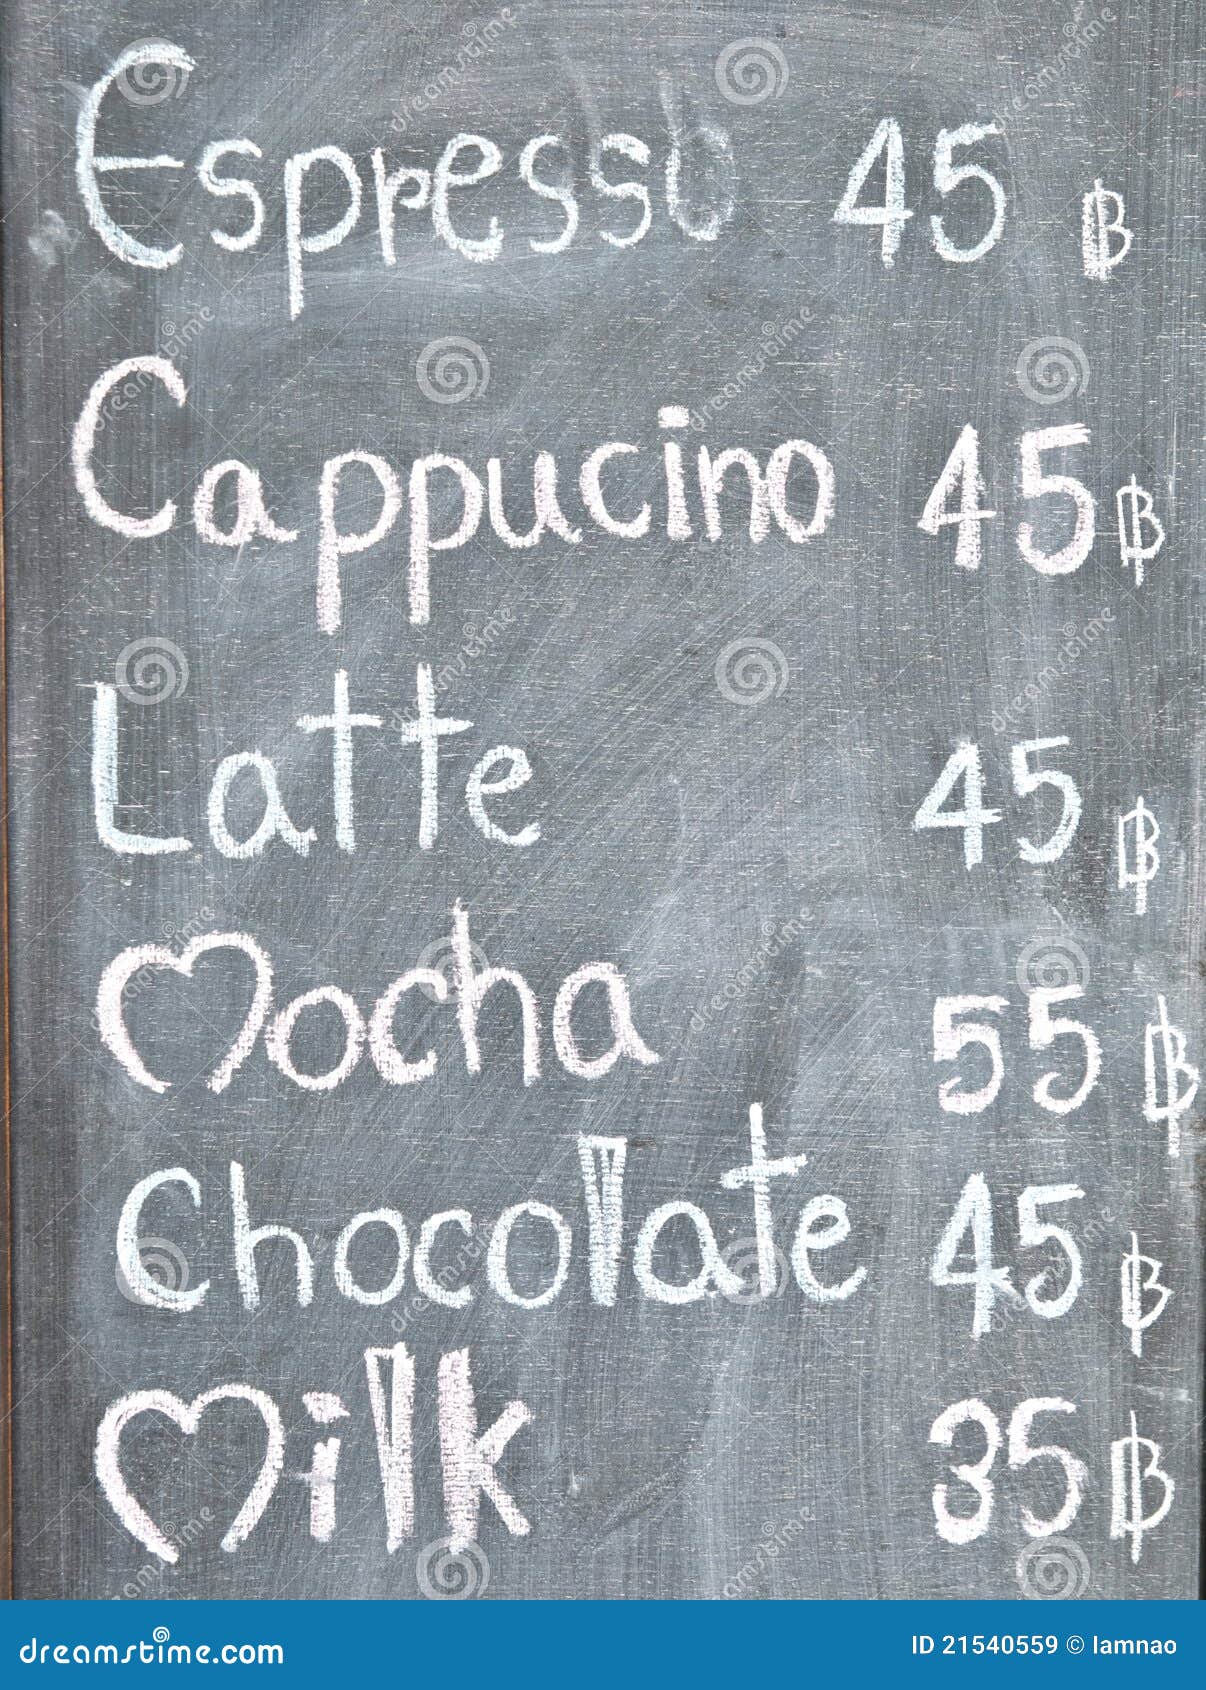 Espresso 45 ฿
Cappucino 45 ฿
Latte 45 ฿
Mocha 55 ฿
Chocolate 45 ฿
Milk 35 ฿
dreamstime.com
ID 21540559 © Iamnao